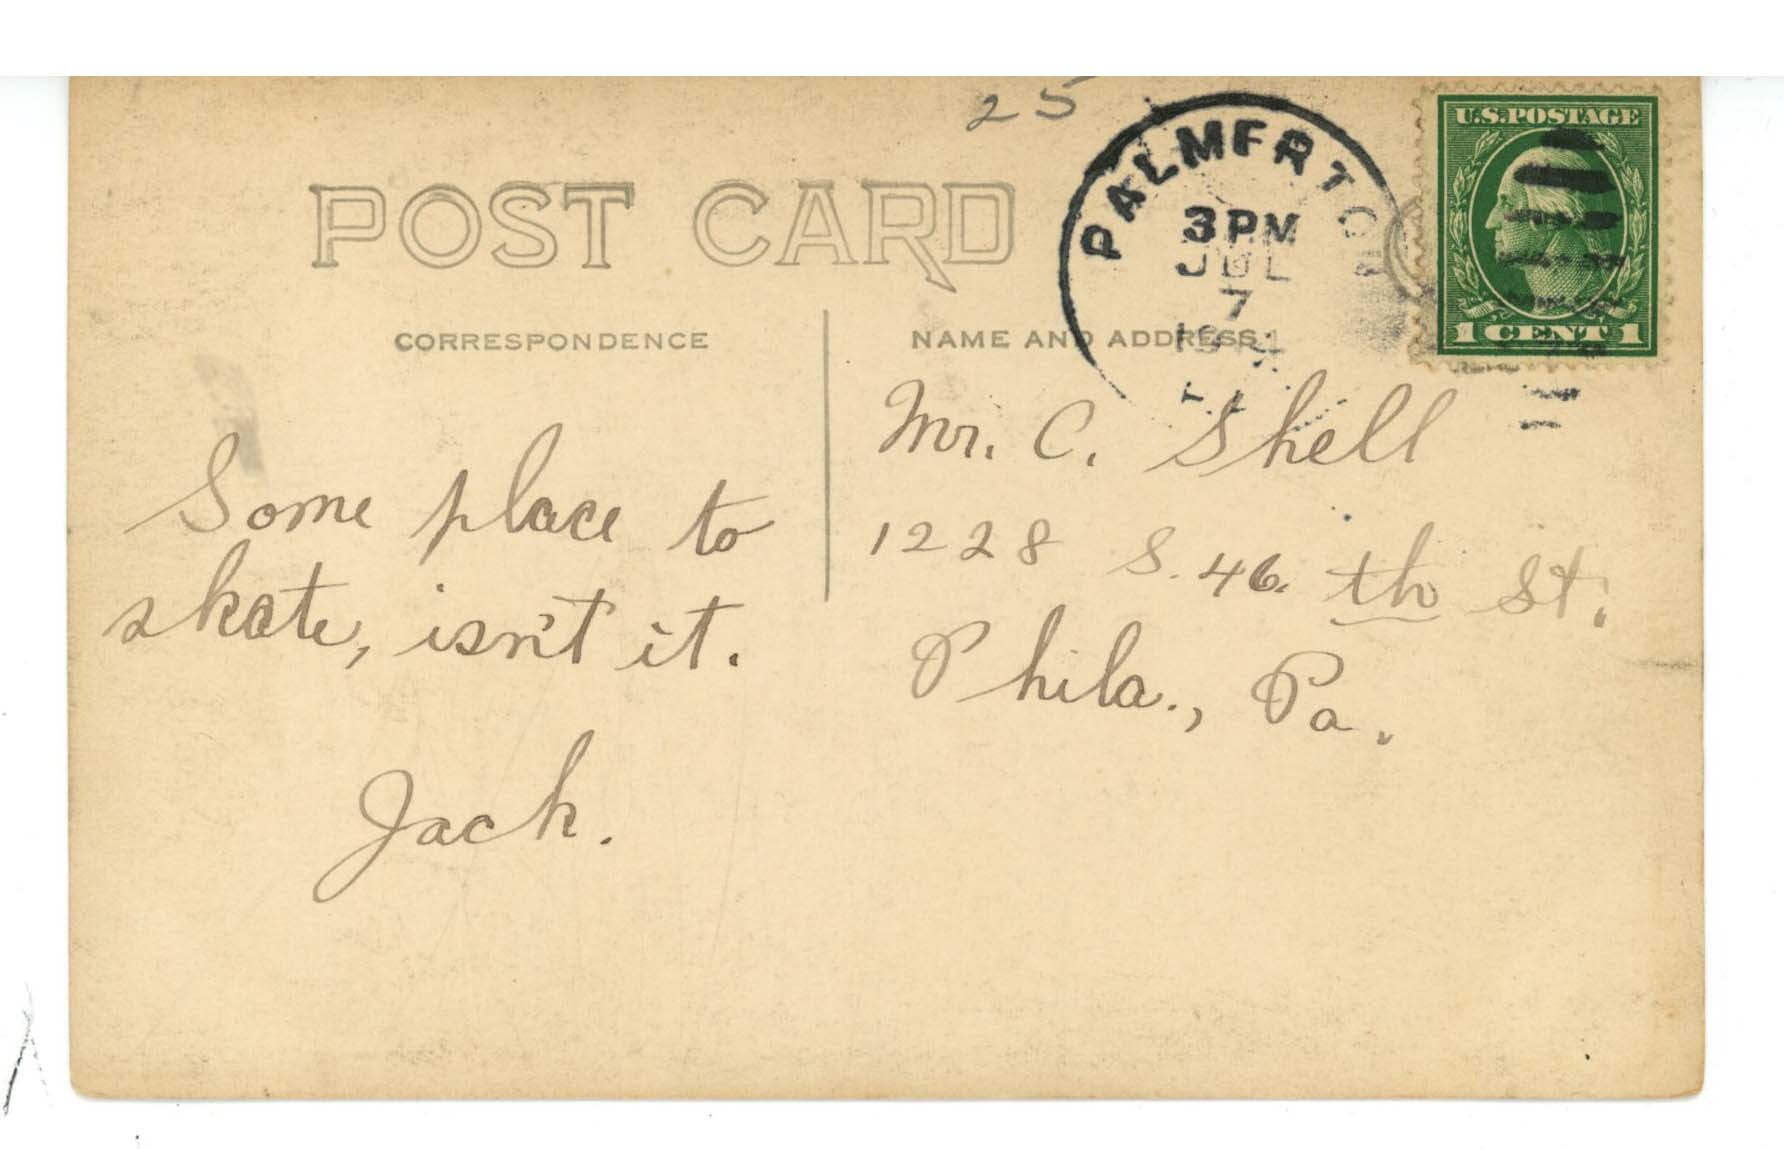 25
POST CARD
PALMERTON
3 PM
JUL
7
U.S. POSTAGE
1 CENT 1
CORRESPONDENCE
NAME AND ADDRESS
Some place to
skate, isn't it.
Jack.
Mr. C. Shell
1228 S. 46. th St.
Phila., Pa.